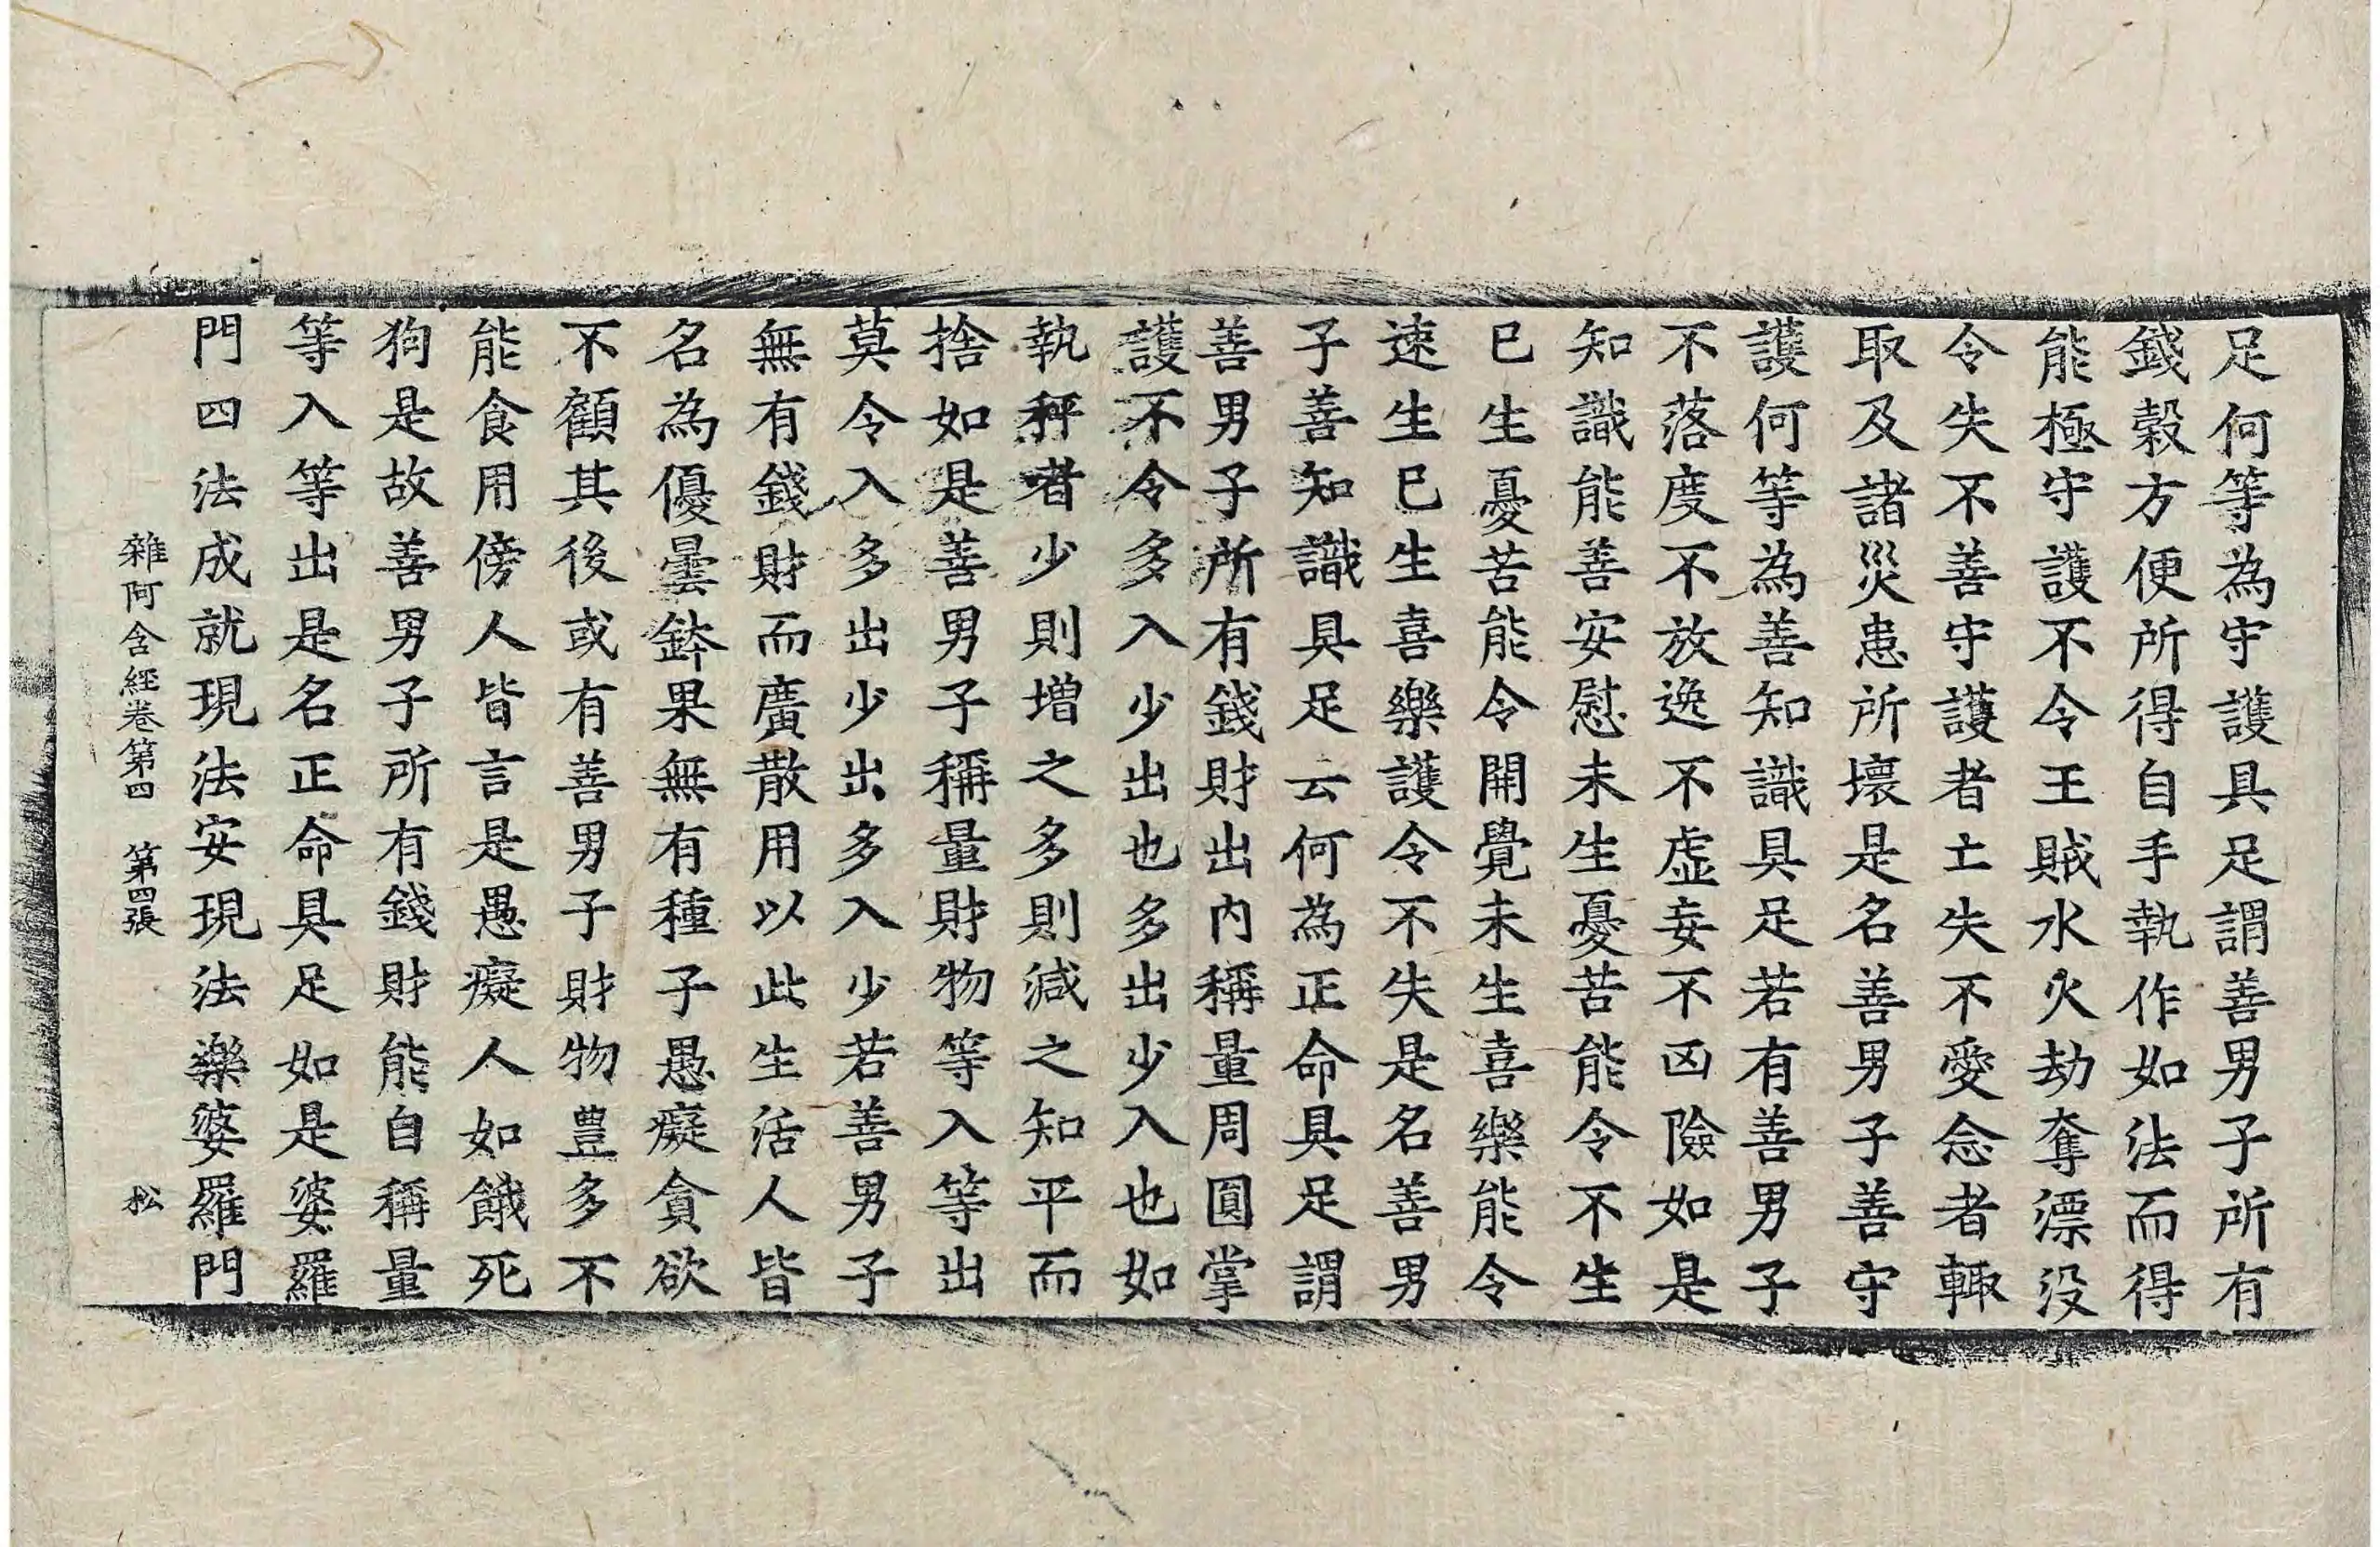 足何等為守護具足謂善男子所有
錢穀方便所得自手執作如法而得
能極守護不令王賊水火劫奪漂没
令失不善守護者亡失不愛念者輙
取及諸災患所壞是名善男子善守
護何等為善知識具足若有善男子
不落度不放逸不虛妄不凶險如是
知識能善安慰未生憂苦能令不生
已生憂苦能令開覺未生喜樂能令
速生已生喜樂護令不失是名善男
子善知識具足云何為正命具足謂
善男子所有錢財出內稱量周圓掌
護不令多入少出也多出少入也如
執秤者少則增之多則減之知平而
捨如是善男子稱量財物等入等出
莫令入多出少出多入少若善男子
無有錢財而廣散用以此生活人皆
名為優曇鉢果無有種子愚癡貪欲
不顧其後或有善男子財物豊多不
能食用傍人皆言是愚癡人如餓死
狗是故善男子所有錢財能自稱量
等入等出是名正命具足如是婆羅
門四法成就現法安現法樂婆羅門
雜阿含經卷第四 第四張 松